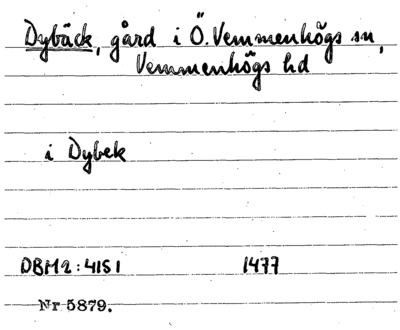 Dybäck, gård i Ö. Vemmenhögs sn,
Vemmenhögs hd
i Dybek
DBM2:4151 1477
Nr 5879.